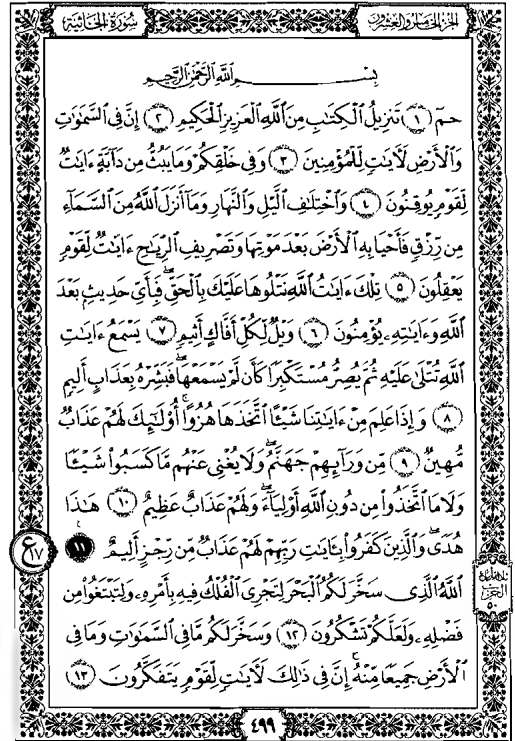 الجزء الخامس والعشرون
سورة الجاثية
بِسْمِ ٱللَّهِ ٱلرَّحْمَٰنِ ٱلرَّحِيمِ
حمٓ ﴿١﴾ تَنزِيلُ ٱلْكِتَٰبِ مِنَ ٱللَّهِ ٱلْعَزِيزِ ٱلْحَكِيمِ ﴿٢﴾ إِنَّ فِى ٱلسَّمَٰوَٰتِ
وَٱلْأَرْضِ لَءَايَٰتٍ لِّلْمُؤْمِنِينَ ﴿٣﴾ وَفِى خَلْقِكُمْ وَمَا يَبُثُّ مِن دَآبَّةٍ ءَايَٰتٌ
لِّقَوْمٍ يُوقِنُونَ ﴿٤﴾ وَٱخْتِلَٰفِ ٱلَّيْلِ وَٱلنَّهَارِ وَمَآ أَنزَلَ ٱللَّهُ مِنَ ٱلسَّمَآءِ
مِن رِّزْقٍ فَأَحْيَا بِهِ ٱلْأَرْضَ بَعْدَ مَوْتِهَا وَتَصْرِيفِ ٱلرِّيَٰحِ ءَايَٰتٌ لِّقَوْمٍ
يَعْقِلُونَ ﴿٥﴾ تِلْكَ ءَايَٰتُ ٱللَّهِ نَتْلُوهَا عَلَيْكَ بِٱلْحَقِّ ۖ فَبِأَىِّ حَدِيثٍۭ بَعْدَ
ٱللَّهِ وَءَايَٰتِهِۦ يُؤْمِنُونَ ﴿٦﴾ وَيْلٌ لِّكُلِّ أَفَّاكٍ أَثِيمٍ ﴿٧﴾ يَسْمَعُ ءَايَٰتِ
ٱللَّهِ تُتْلَىٰ عَلَيْهِ ثُمَّ يُصِرُّ مُسْتَكْبِرًا كَأَن لَّمْ يَسْمَعْهَا ۖ فَبَشِّرْهُ بِعَذَابٍ أَلِيمٍ
﴿٨﴾ وَإِذَا عَلِمَ مِنْ ءَايَٰتِنَا شَيْـًٔا ٱتَّخَذَهَا هُزُوًا ۚ أُو۟لَٰٓئِكَ لَهُمْ عَذَابٌ
مُّهِينٌ ﴿٩﴾ مِّن وَرَآئِهِمْ جَهَنَّمُ ۖ وَلَا يُغْنِى عَنْهُم مَّا كَسَبُوا۟ شَيْـًٔا
وَلَا مَا ٱتَّخَذُوا۟ مِن دُونِ ٱللَّهِ أَوْلِيَآءَ ۖ وَلَهُمْ عَذَابٌ عَظِيمٌ ﴿١٠﴾ هَٰذَا
هُدًى ۖ وَٱلَّذِينَ كَفَرُوا۟ بِـَٔايَٰتِ رَبِّهِمْ لَهُمْ عَذَابٌ مِّن رِّجْزٍ أَلِيمٌ ﴿١١﴾
ع ١٧
ٱللَّهُ ٱلَّذِى سَخَّرَ لَكُمُ ٱلْبَحْرَ لِتَجْرِىَ ٱلْفُلْكُ فِيهِ بِأَمْرِهِۦ وَلِتَبْتَغُوا۟ مِن
فَضْلِهِۦ وَلَعَلَّكُمْ تَشْكُرُونَ ﴿١٢﴾ وَسَخَّرَ لَكُم مَّا فِى ٱلسَّمَٰوَٰتِ وَمَا فِى
ٱلْأَرْضِ جَمِيعًا مِّنْهُ ۚ إِنَّ فِى ذَٰلِكَ لَءَايَٰتٍ لِّقَوْمٍ يَتَفَكَّرُونَ ﴿١٣﴾
٤٩٩